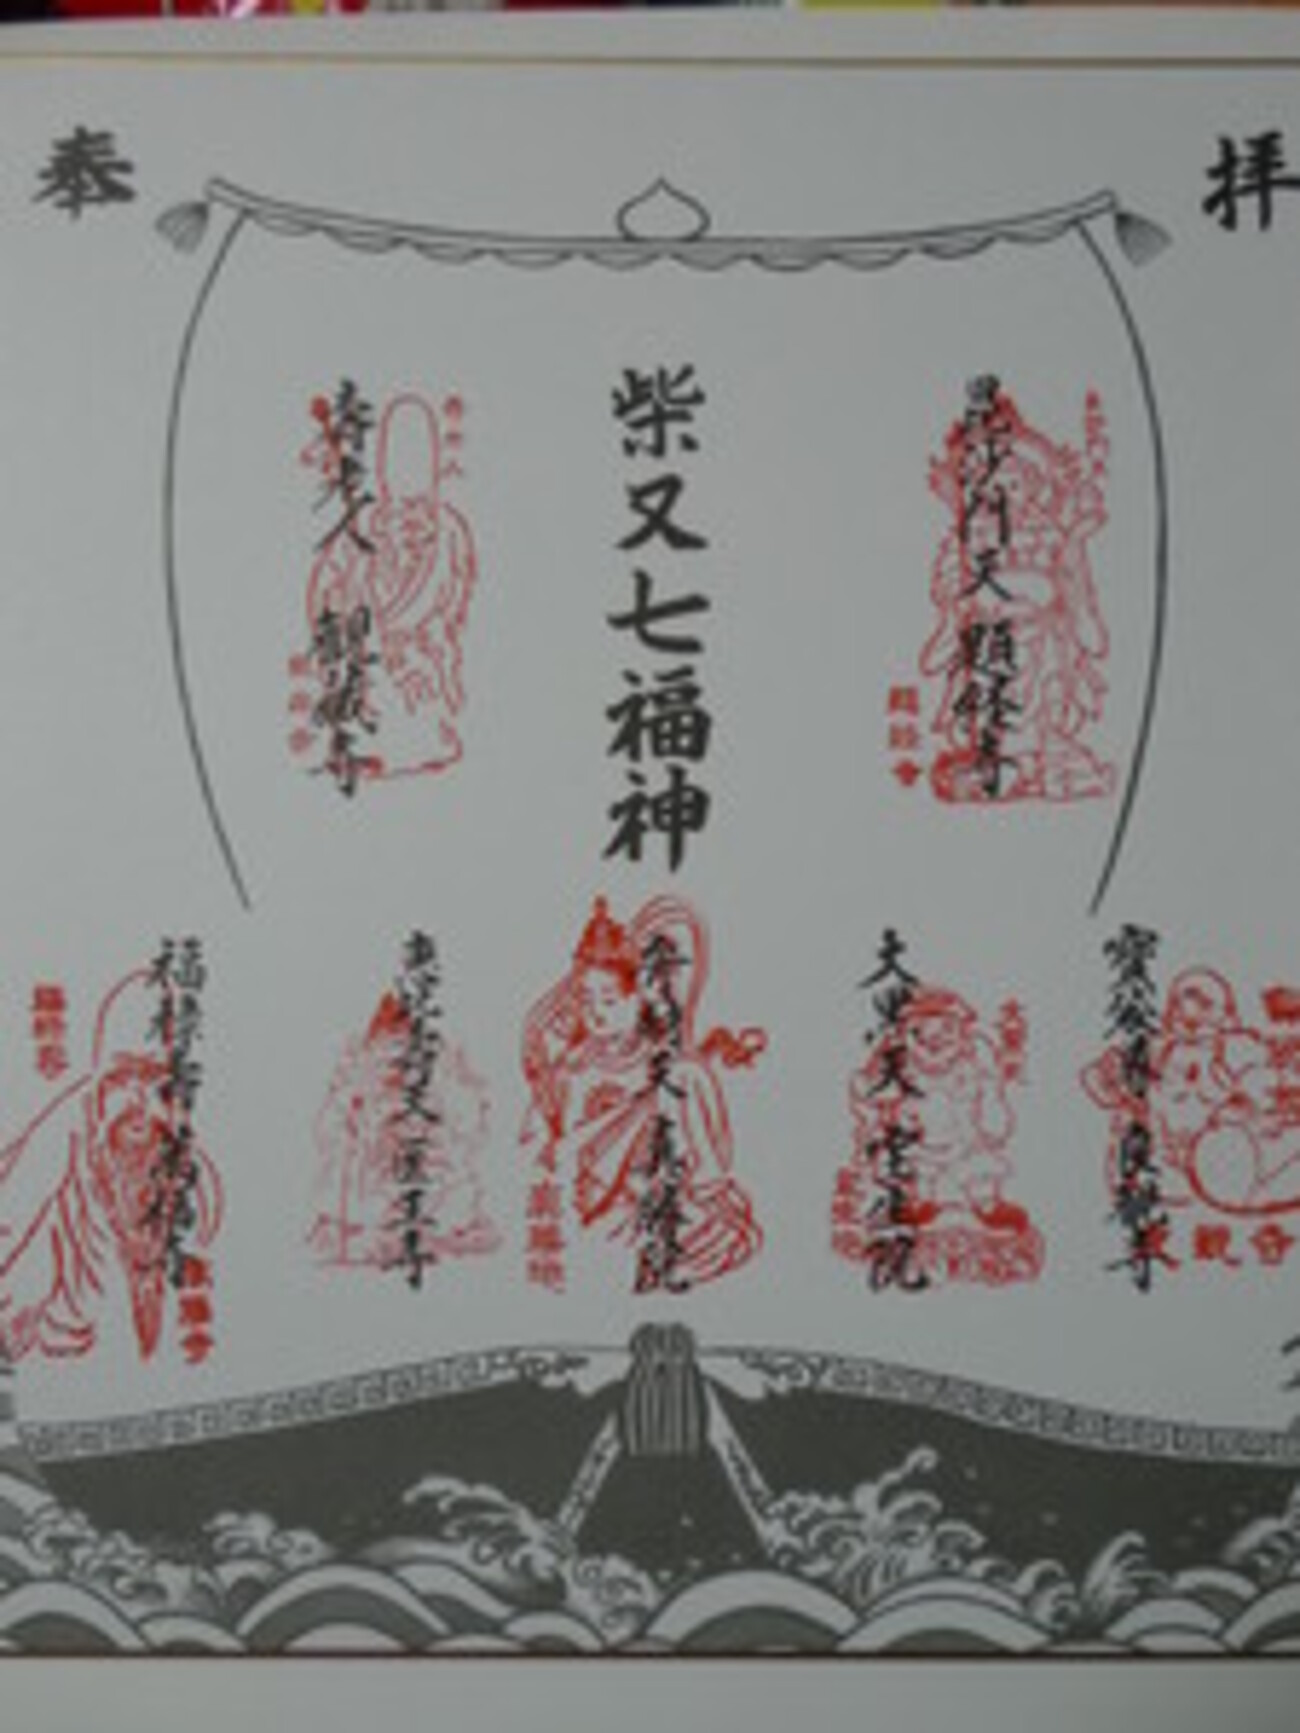 奉
拝
柴又七福神
毘沙門天 題経寺
寿老人 観蔵寺
宝袋尊 良観寺
大黒天 宝生院
弁財天 真勝院
恵比寿天 医王寺
福禄寿 萬福寺